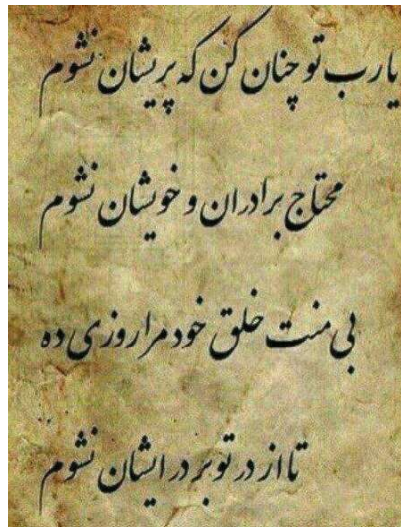 یارب تو چنان کن که پریشان نشوم
محتاج برادران و خویشان نشوم
بی منت خلق خود مرا روزی ده
تا از در تو بر در ایشان نشوم